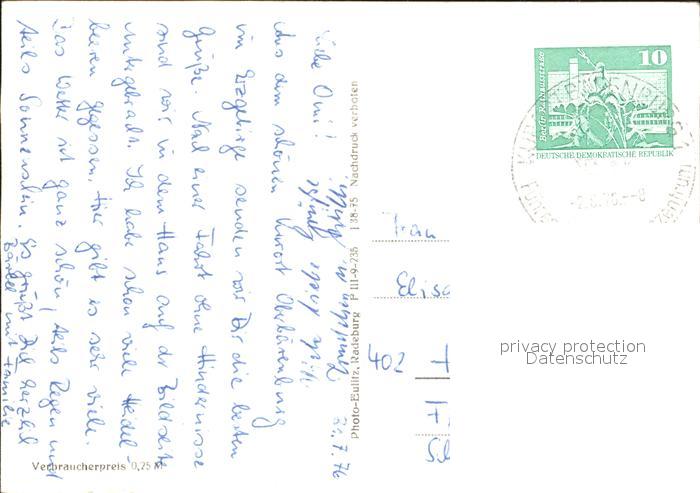 31.7.76
Liebe Omi!
Aus dem schönen Kurort Oberbärenburg
im Erzgebirge senden wir Dir die besten
Grüße. Nach einer Fahrt ohne Hindernisse
sind wir in dem Haus auf der Bildseite
untergebracht. Ich habe schon viele Heidel-
beeren gegessen. Hier gibt es sehr viele.
Das Wetter ist ganz schön, teils Regen und
teils Sonnenschein. Es grüßt Dich herzlich
Bärbel mit Familie
Photo-Eulitz, Radeburg P III-9-235 I 38-75 Nachdruck verboten
Verbraucherpreis 0,25 M
10
Berlin, Rathausstraße
DEUTSCHE DEMOKRATISCHE REPUBLIK
-2.8.76.--8
Frau
Elis
402
privacy protection
Datenschutz